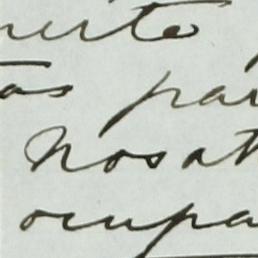 uerto
as par
Nosot
ocupa